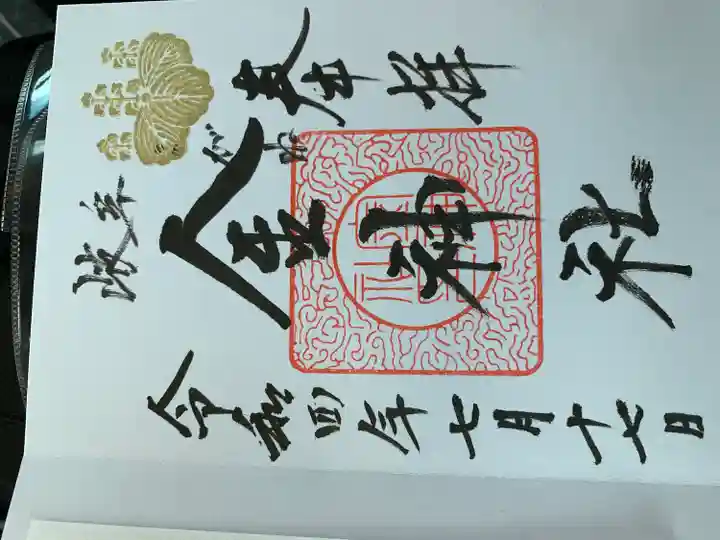 奉拝
岐阜
がね
金神社
令和四年七月十七日